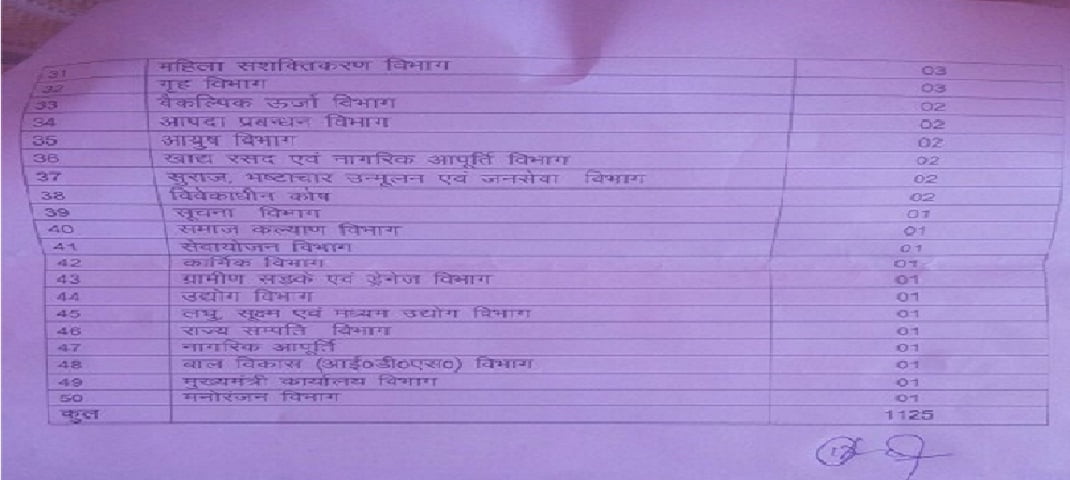 31 महिला सशक्तिकरण विभाग 03
32 गृह विभाग 03
33 वैकल्पिक ऊर्जा विभाग 02
34 आपदा प्रबन्धन विभाग 02
35 आयुष विभाग 02
36 खाद्य रसद एवं नागरिक आपूर्ति विभाग 02
37 सुराज, भष्टाचार उन्मूलन एवं जनसेवा विभाग 02
38 विवेकाधीन कोष 02
39 सूचना विभाग 01
40 समाज कल्याण विभाग 01
41 सेवायोजन विभाग 01
42 कार्मिक विभाग 01
43 ग्रामीण सड़के एवं ड्रेनेज विभाग 01
44 उद्योग विभाग 01
45 लघु, सूक्ष्म एवं मध्यम उद्योग विभाग 01
46 राज्य सम्पति विभाग 01
47 नागरिक आपूर्ति 01
48 बाल विकास (आई०डी०एस०) विभाग 01
49 मुख्यमंत्री कार्यालय विभाग 01
50 मनोरंजन विभाग 01
कुल 1125